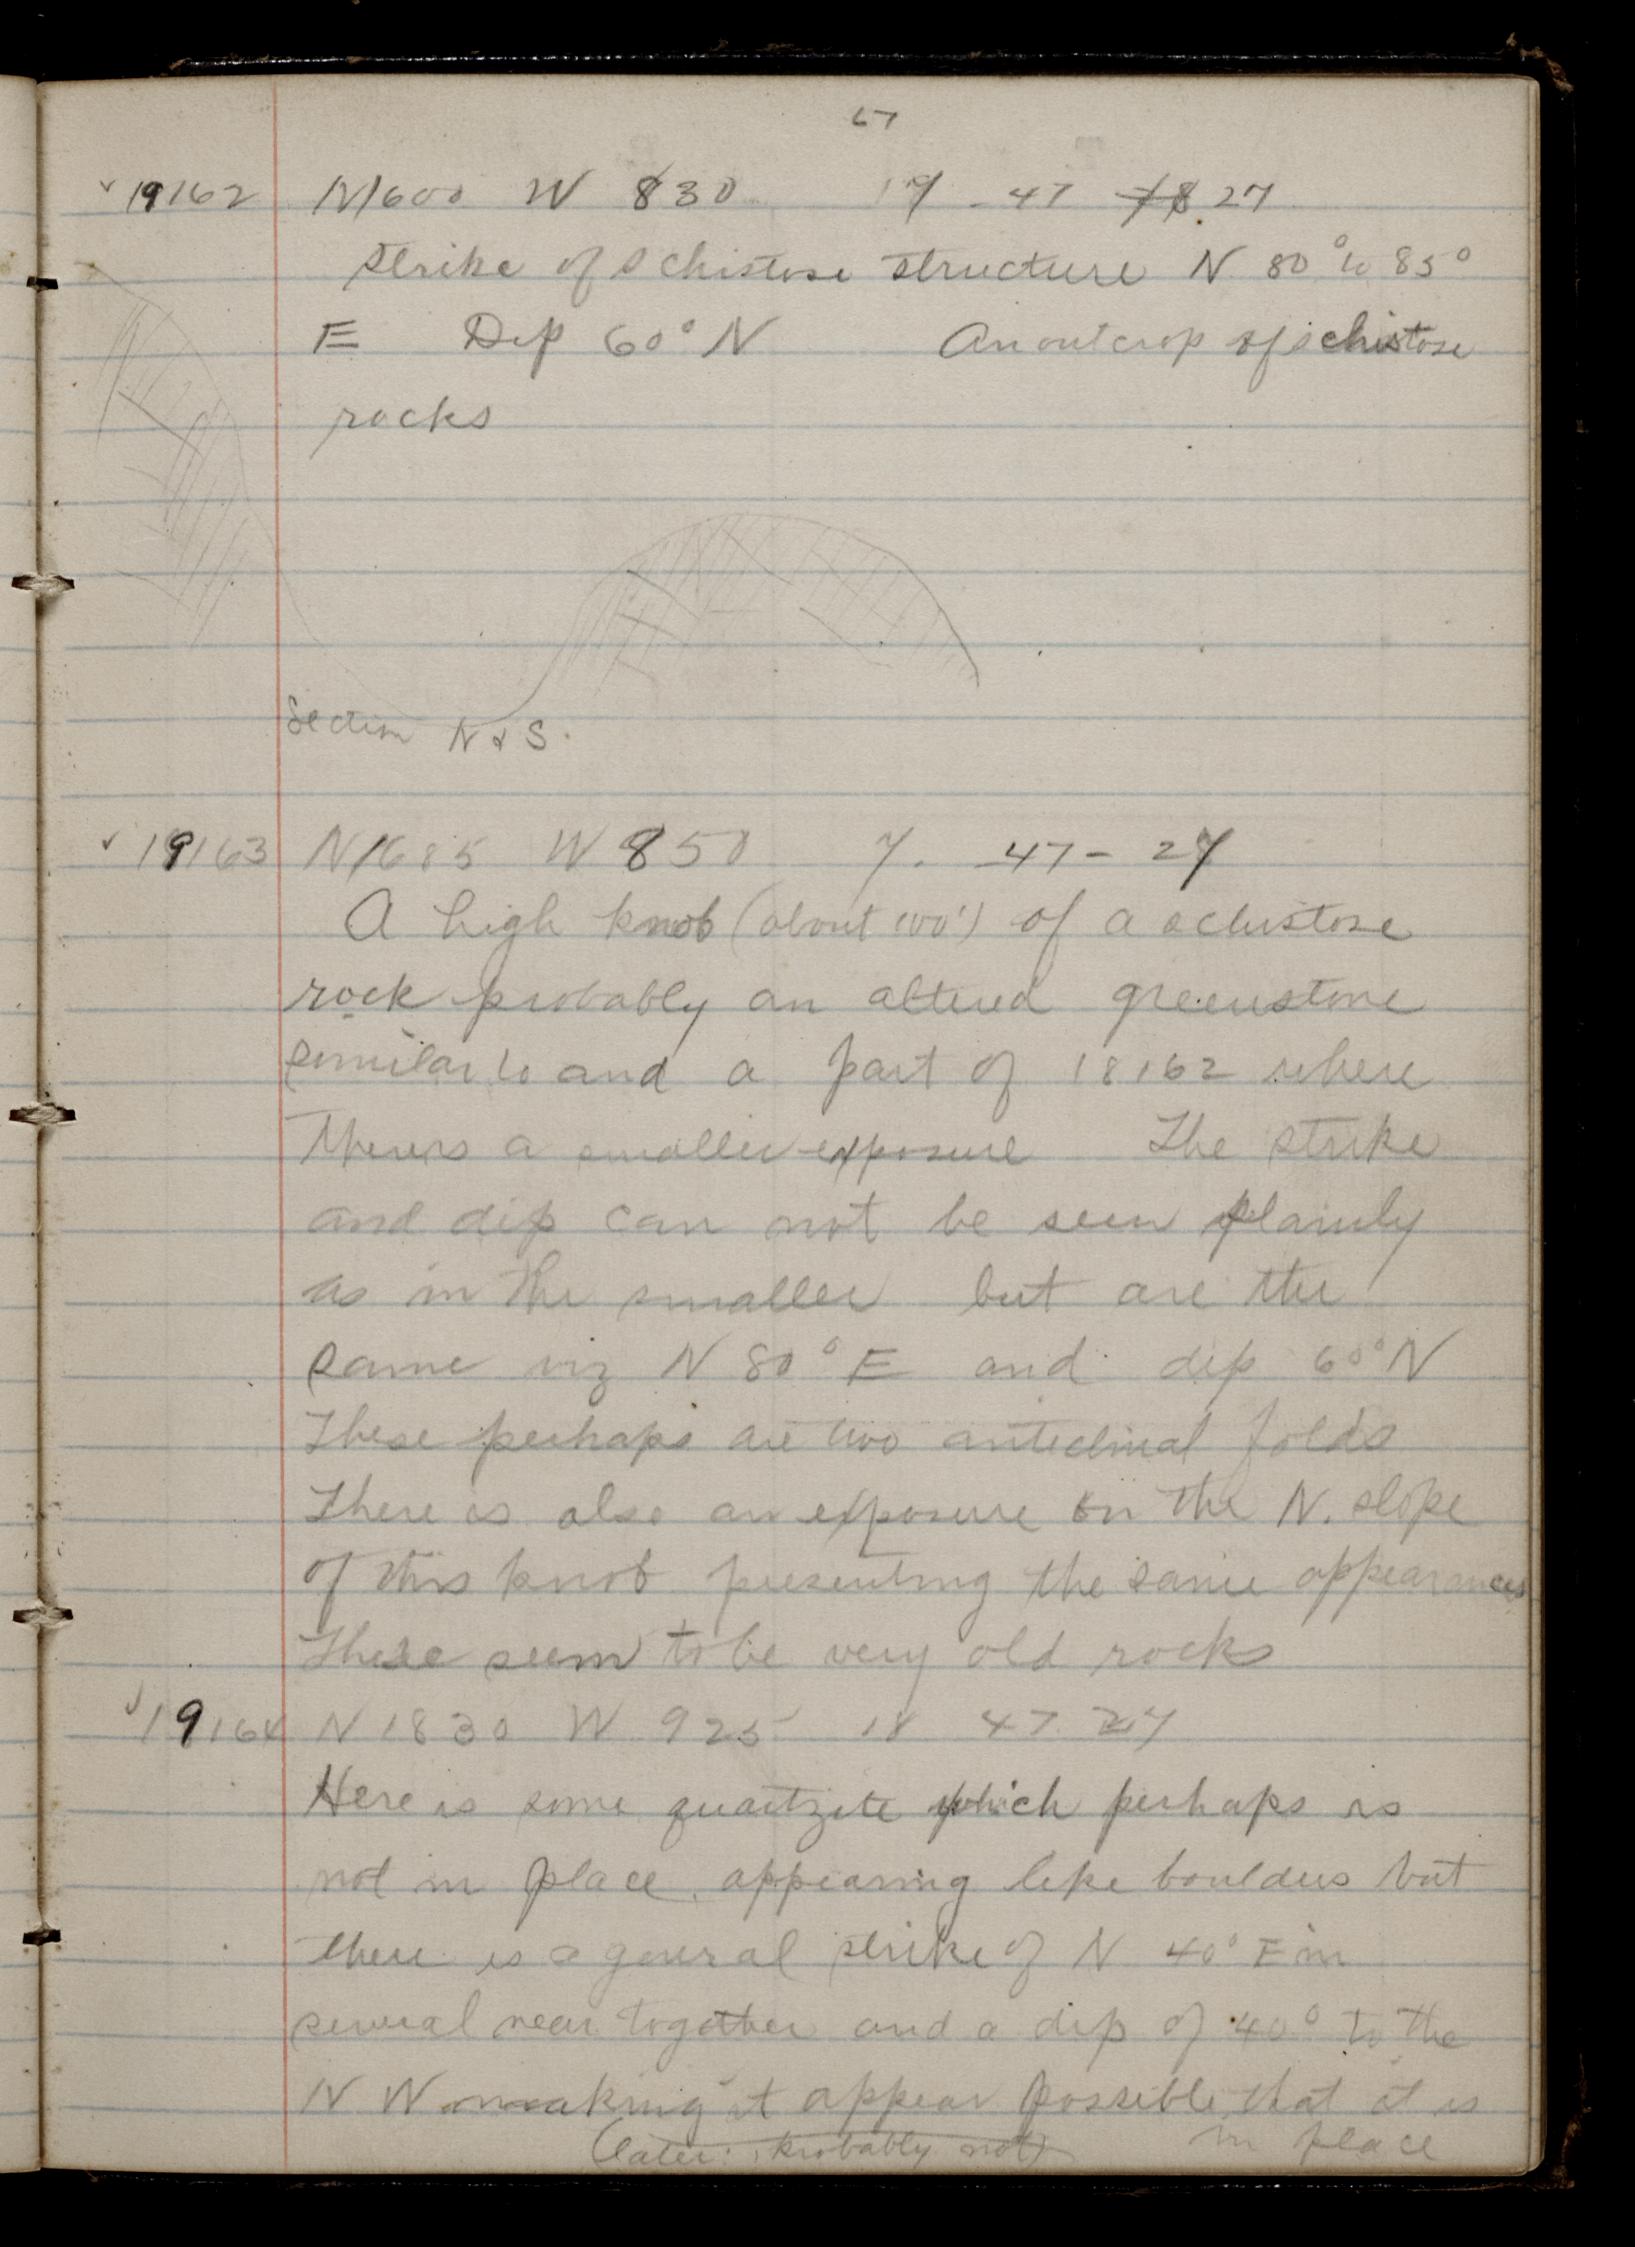 67
19162 N1600 W 830 19 - 47 27
Strike of schistose structure N 80° to 85°
E Dip 60° N An outcrop of schistose
rocks
Section N & S.
19163 N1685 W 850 7. 47 - 27
A high knob (about 100') of a schistose
rock probably an altered greenstone
similar to and a part of 18162 where
there is a smaller exposure The strike
and dip can not be seen plainly
as in the smaller but are the
same viz N 80° E and dip 60° N
These perhaps are two anticlinal folds
There is also an exposure on the N. slope
of this knob presenting the same appearances
These seem to be very old rocks
19164 N 1830 W 925 18 47 27
Here is some quartzite which perhaps is
not in place, appearing like boulders but
there is a general strike of N 40° E in
several near together and a dip of 40° to the
N W making it appear possible that it is
in place
(later: probably not)